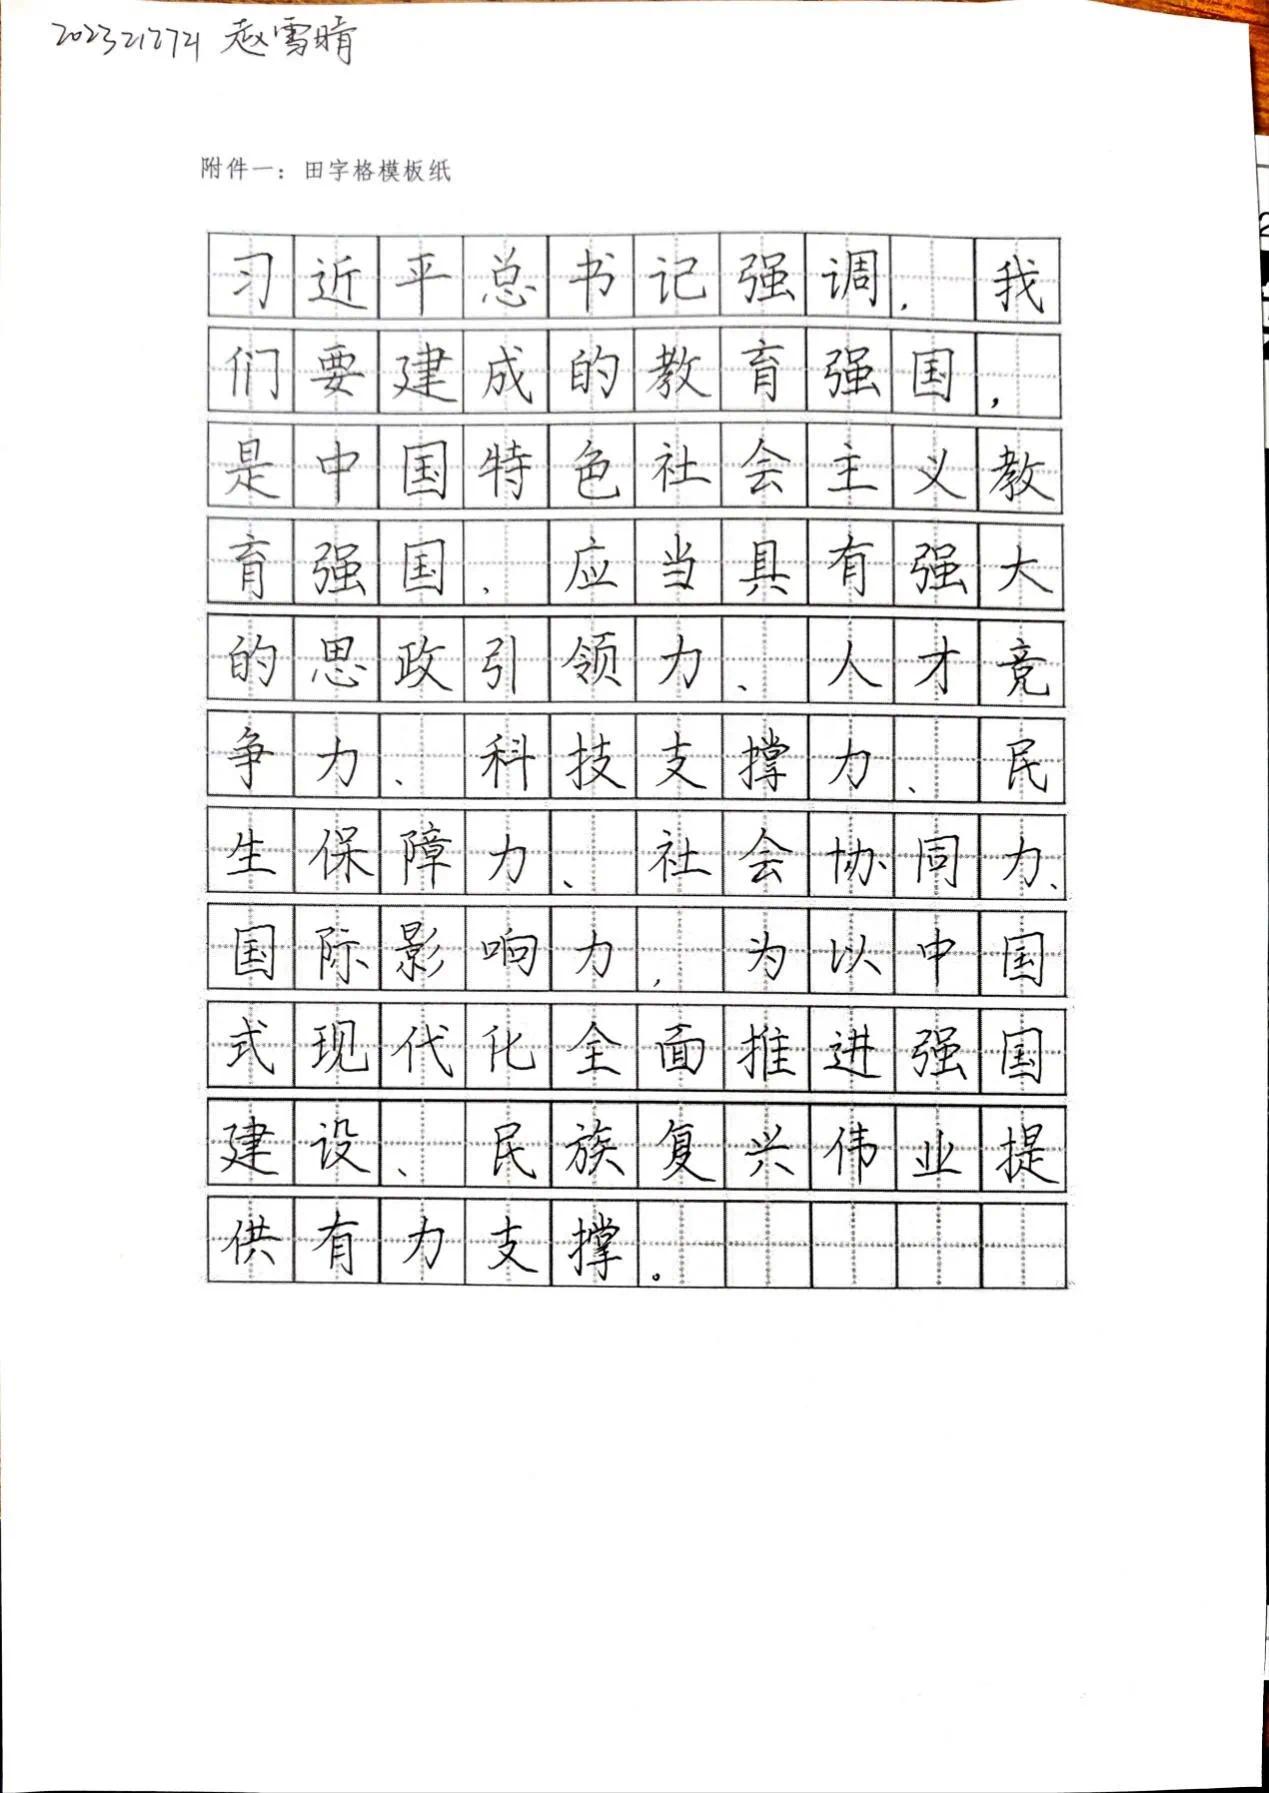 2023212721 赵雪晴
附件一：田字格模板纸
习近平总书记强调，我
们要建成的教育强国，
是中国特色社会主义教
育强国，应当具有强大
的思政引领力、人才竞
争力、科技支撑力、民
生保障力、社会协同力、
国际影响力，为以中国
式现代化全面推进强国
建设、民族复兴伟业提
供有力支撑。